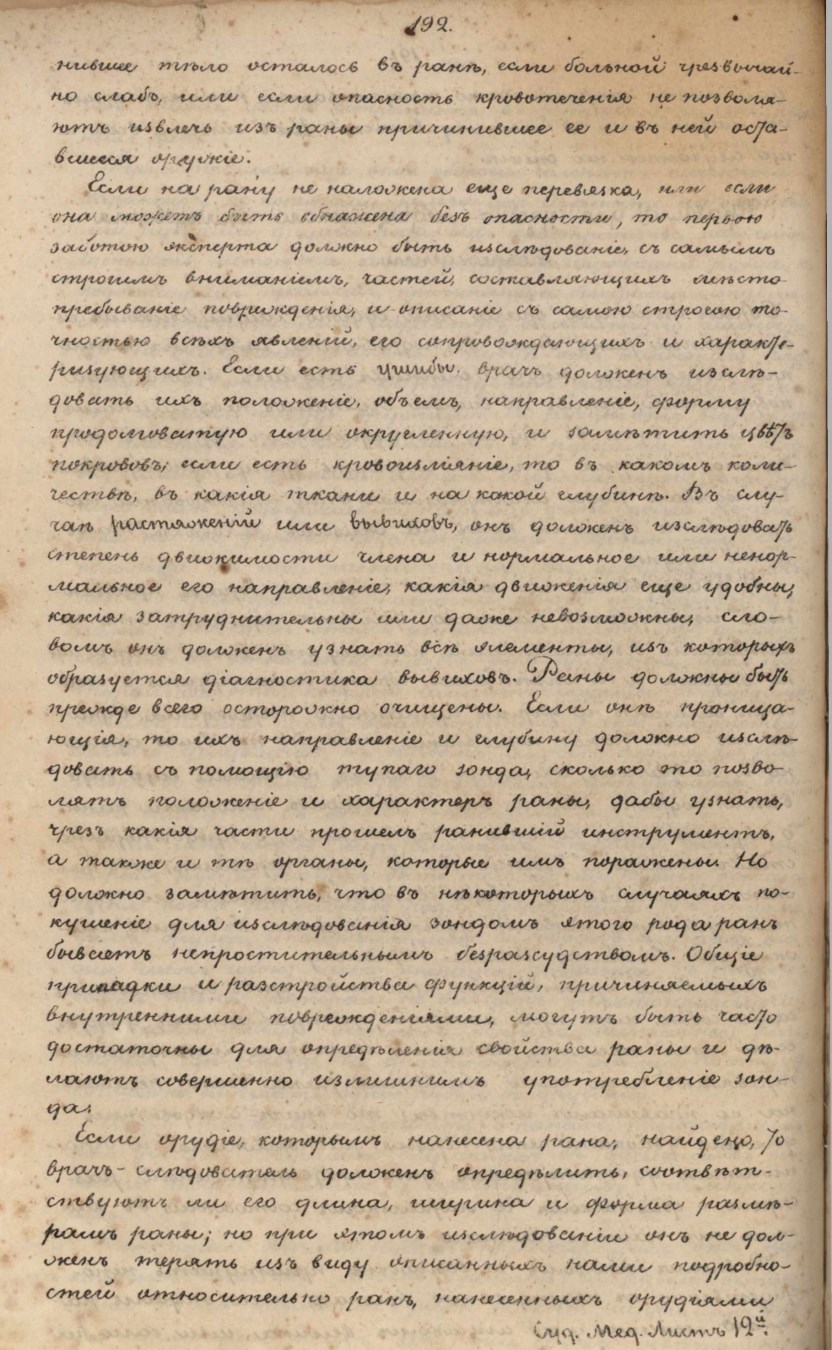 192.
нившее тѣло осталось въ ранѣ, если больной чрезвычай-
но слабъ, или если опасность кровотеченія не позволя-
ютъ извлечь изъ раны причинившее ее и въ ней оста-
вшееся оружіе.
Если на рану не наложена еще перевязка, или если
она можетъ быть обнажена безъ опасности, то первою
заботою эксперта должно быть изслѣдованіе, съ самымъ
строгимъ вниманіемъ, частей, составляющихъ мѣсто
пребываніе поврежденія, и описаніе съ самою строгою то-
чностью всѣхъ явленій, его сопровождающихъ и характе-
ризующихъ. Если есть ушибы, врачъ долженъ изслѣ-
довать ихъ положеніе, объемъ, направленіе, форму
продолговатую или округленную, и замѣтить цвѣтъ
покрововъ; если есть кровоизліяніе, то въ какомъ коли-
чествѣ, въ какія ткани и на какой глубинѣ. Въ слу-
чаѣ растяженій или вывиховъ, онъ долженъ изслѣдовать
степень движимости члена и нормальное или ненор-
мальное его направленіе, какія движенія еще удобны,
какія затруднительны или даже невозможны, сло-
вомъ онъ долженъ узнать всѣ элементы, изъ которыхъ
образуется діагностика вывиховъ. Раны должны быть
прежде всего осторожно очищены. Если онѣ проница-
ющія, то ихъ направленіе и глубину должно изслѣ-
довать съ помощію тупаго зонда, сколько то позво-
лятъ положеніе и характеръ раны, дабы узнать,
чрезъ какія части прошелъ ранившій инструментъ,
а также и тѣ органы, которые имъ поражены. Но
должно замѣтить, что въ нѣкоторыхъ случаяхъ по-
кушеніе для изслѣдованія зондомъ этого рода ранъ
бываетъ непростительнымъ безразсудствомъ. Общіе
припадки и разстройства функцій, причиняемыхъ
внутренними поврежденіями, могутъ быть часто
достаточны для опредѣленія свойства раны и дѣ-
лаютъ совершенно излишнимъ употребленіе зон-
да.
Если орудіе, которымъ нанесена рана, найдено, то
врачъ-слѣдователь долженъ опредѣлить, соотвѣт-
ствуютъ ли его длина, ширина и форма размѣ-
рамъ раны; но при этомъ изслѣдованіи онъ не дол-
женъ терять изъ виду описанныхъ нами подробно-
стей относительно ранъ, нанесенныхъ орудіями
Суд. Мед. Листъ 12й.